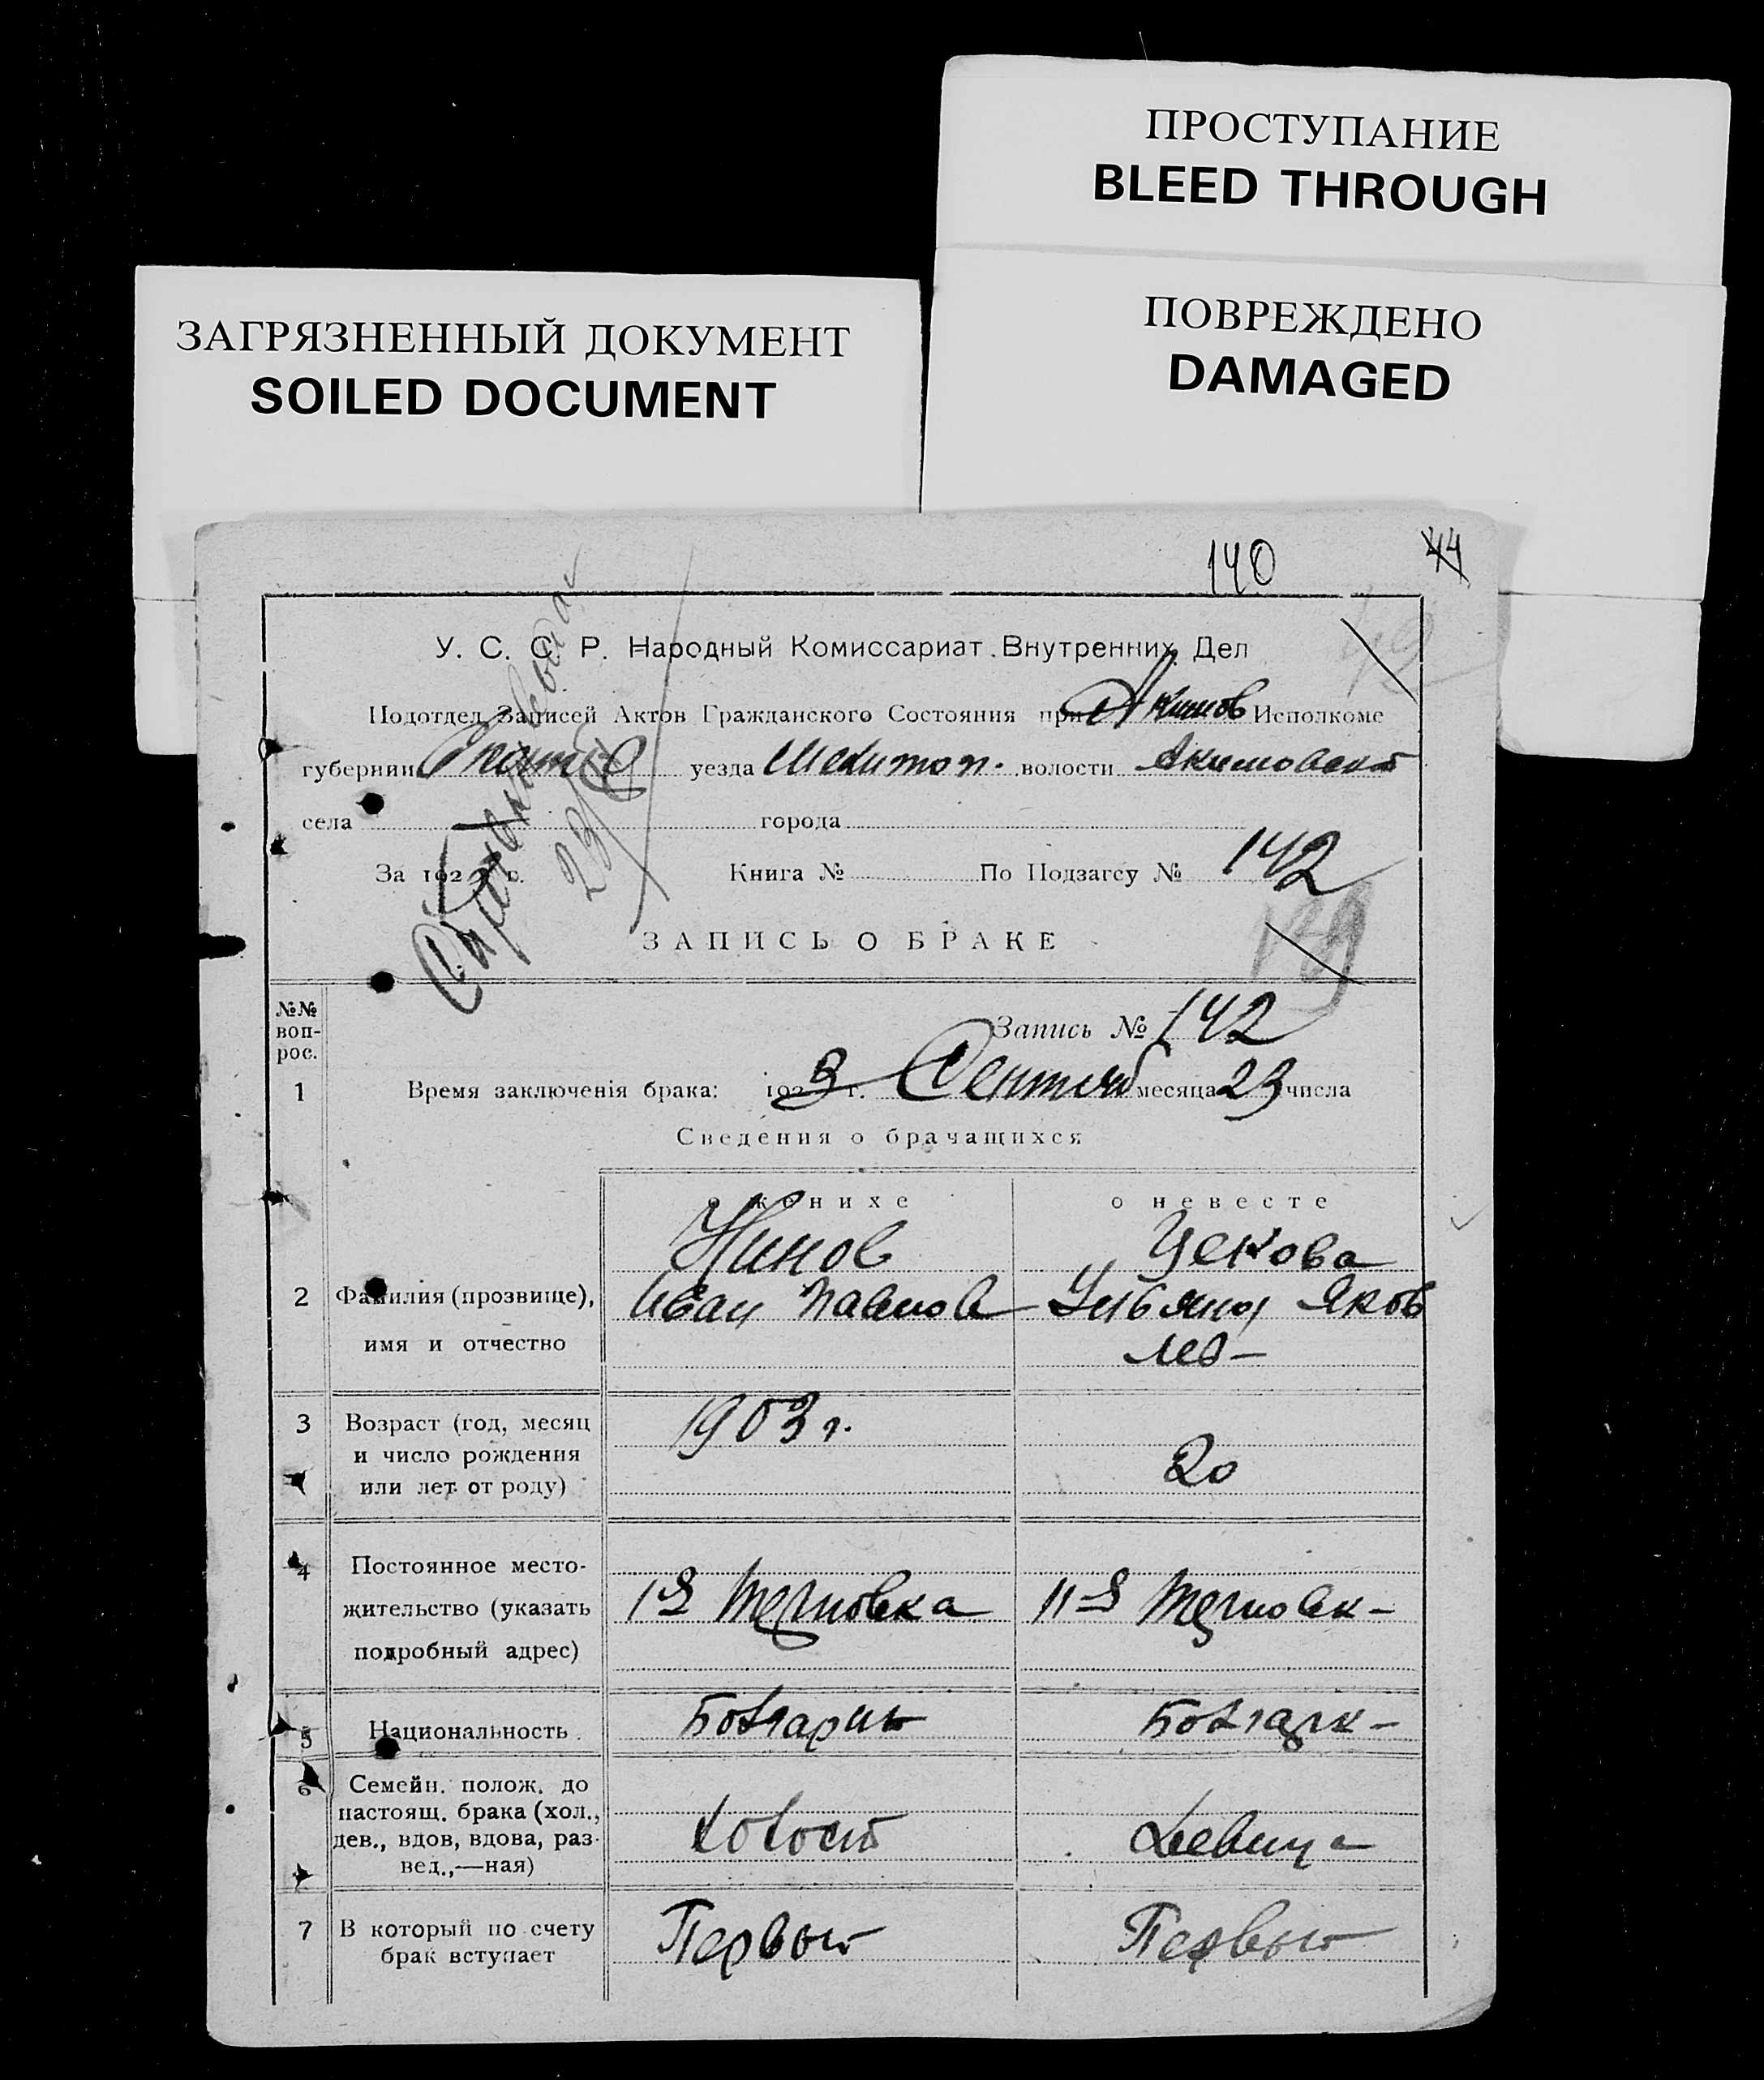 ПРОСТУПАНИЕ
BLEED THROUGH
ЗАГРЯЗНЕННЫЙ ДОКУМЕНТ
SOILED DOCUMENT
ПОВРЕЖДЕНО
DAMAGED
140 44
49
У. С. С. Р. Народный Комиссариат Внутренних Дел
Подотдел Записей Актов Гражданского Состояния при Акимов Исполкоме
губернии уезда Мелитоп. волости Акимовской
села города
За 192 г. Книга № По Подзагсу № 142
139
ЗАПИСЬ О БРАКЕ
№№ воп-рос.
Запись № 142
1 Время заключенія брака: 1923 г. Сентяб месяца 23 числа
Сведения о брачащихся
о женихе о невесте
Нинов Цекова
2 Фамилия (прозвище), Иван Павлов Ульяна Яков
имя и отчество лев-
3 Возраст (год, месяц 1903 г.
и число рождения 20
или лет от роду)
4 Постоянное место-
жительство (указать 1я Терновка 11-я Терновк-
подробный адрес)
5 Национальность Болгарин Болгарк-
6 Семейн. полож. до
настоящ. брака (хол.,
дев., вдов, вдова, раз- холост девица
вед.,—ная)
7 В который по счету Первый Первый
брак вступает